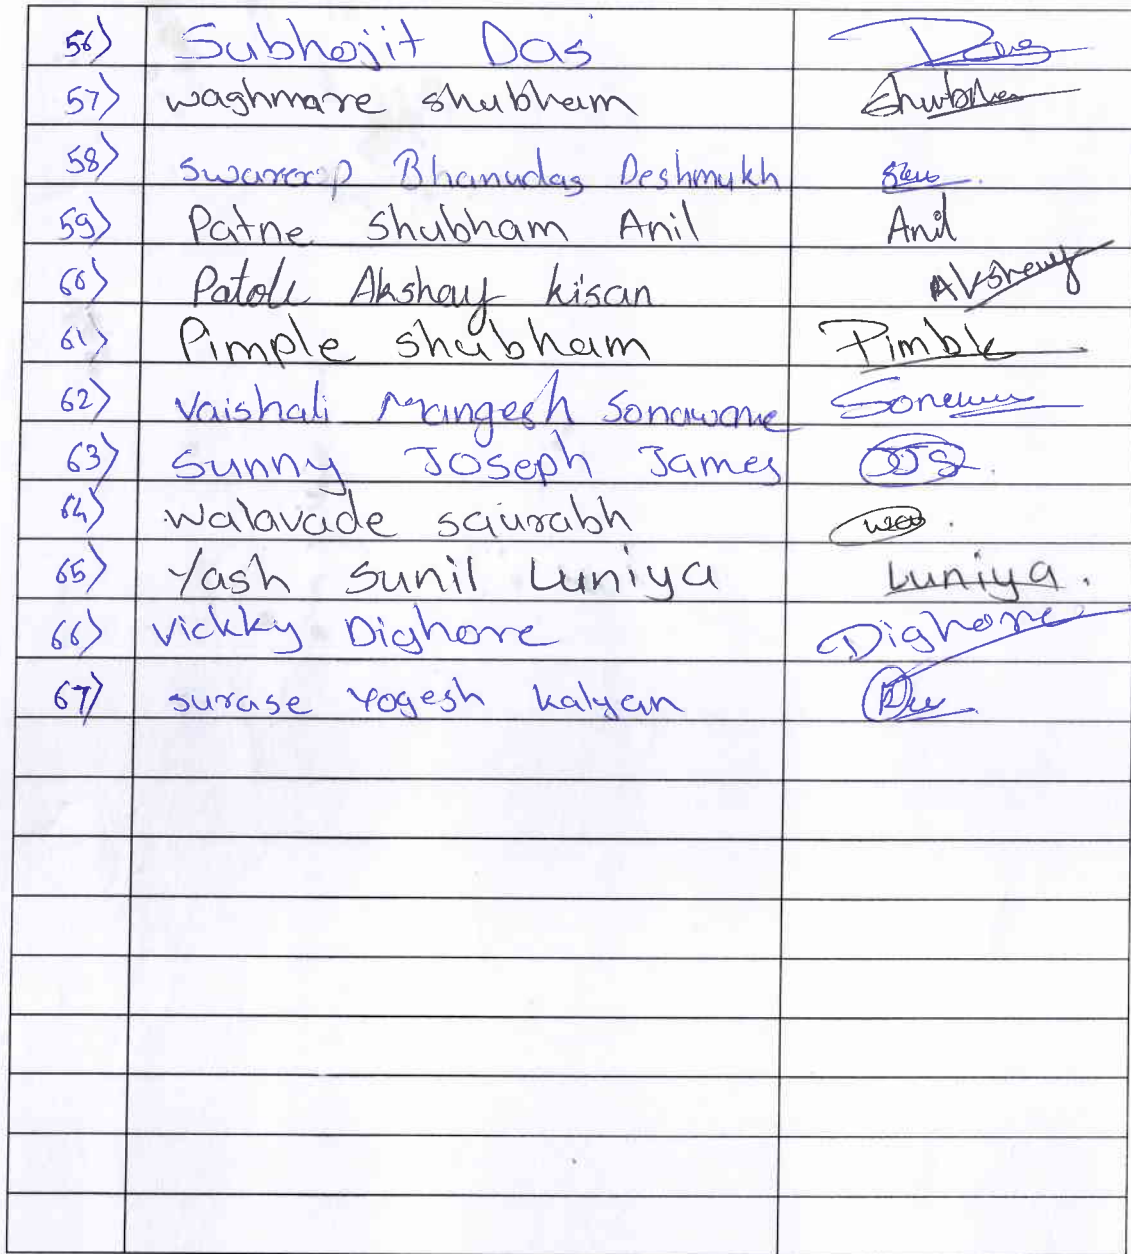 56) Subhojit Das Das
57) waghmare shubham Shubham
58) swaroop Bhanudas Deshmukh
59) Patne shubham Anil Anil
60) Patole Akshay kisan Akshay
61) Pimple shubham Pimble
62) Vaishali Mangesh Sonawane
63) Sunny Joseph James
64) walavade saurabh
65) Yash Sunil Luniya Luniya.
66) Vickky Dighore Dighore
67) surase Yogesh kalyan